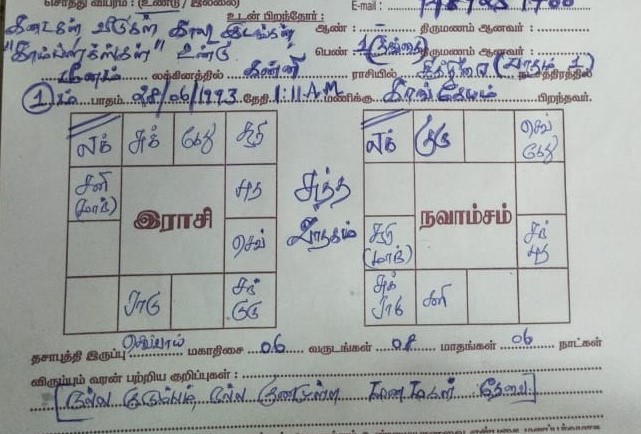 சொத்து விபரம் : (உண்டு / இல்லை)
E-mail :
உடன் பிறந்தோர் :
கடைகள் வீடுகள் காலி இடங்கள் ஆண் : – திருமணம் ஆனவர்
"காம்ப்ளக்ஸ்கள்" உண்டு பெண் : 1 (தங்கை) திருமணம் ஆனவர்
மீனம் லக்கினத்தில் கன்னி ராசியில் சித்திரை (பாதம் 1) நட்சத்திரத்தில்
1 ம் பாதம் 28/06/1993 தேதி 1:11 A.M மணிக்கு காங்கேயம் பிறந்தவர்.
லக் சுக் கேது சூரி
லக் குரு செவ் கேது
சனி (மாந்) புத
இராசி
சுத்த ஜாதகம்
நவாம்சம்
செவ்
சூரி (மாந்) சந் புத
ராகு சந் குரு
சுக் ராகு சனி
தசாபுத்தி இருப்பு செவ்வாய் மகாதிசை 06 வருடங்கள் 08 மாதங்கள் 06 நாட்கள்
விரும்பும் வரன் பற்றிய குறிப்புகள் :
நல்ல குடும்பம், நல்ல குணமுள்ள மணமகன் தேவை